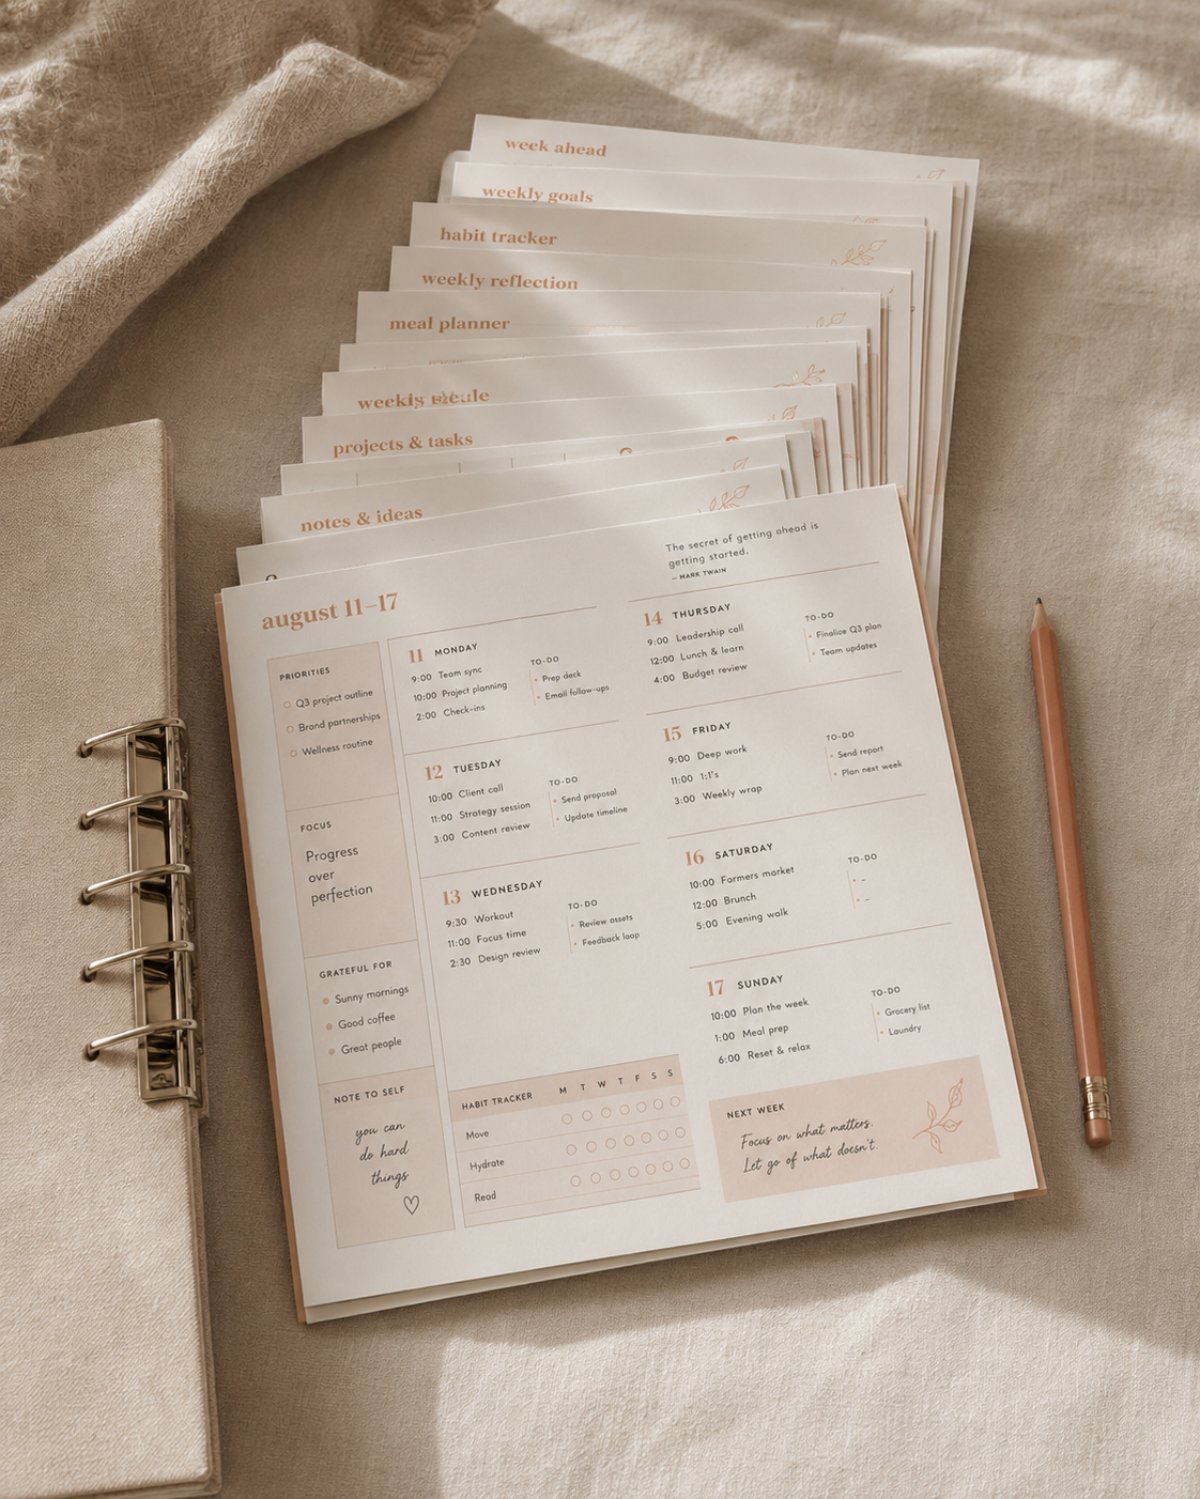 week ahead
weekly goals
habit tracker
weekly reflection
meal planner
projects & tasks
notes & ideas
The secret of getting ahead is
getting started.
– MARK TWAIN
august 11–17
PRIORITIES
Q3 project outline
Brand partnerships
Wellness routine
FOCUS
Progress
over
perfection
GRATEFUL FOR
Sunny mornings
Good coffee
Great people
NOTE TO SELF
you can
do hard
things
11 MONDAY
9:00 Team sync
10:00 Project planning
2:00 Check-ins
TO-DO
Prep deck
Email follow-ups
12 TUESDAY
10:00 Client call
11:00 Strategy session
3:00 Content review
TO-DO
Send proposal
Update timeline
13 WEDNESDAY
9:30 Workout
11:00 Focus time
2:30 Design review
TO-DO
Review assets
Feedback loop
HABIT TRACKER M T W T F S S
Move
Hydrate
Read
14 THURSDAY
9:00 Leadership call
12:00 Lunch & learn
4:00 Budget review
TO-DO
Finalize Q3 plan
Team updates
15 FRIDAY
9:00 Deep work
11:00 1:1's
3:00 Weekly wrap
TO-DO
Send report
Plan next week
16 SATURDAY
10:00 Farmers market
12:00 Brunch
5:00 Evening walk
TO-DO
–
–
17 SUNDAY
10:00 Plan the week
1:00 Meal prep
6:00 Reset & relax
TO-DO
Grocery list
Laundry
NEXT WEEK
Focus on what matters.
Let go of what doesn't.